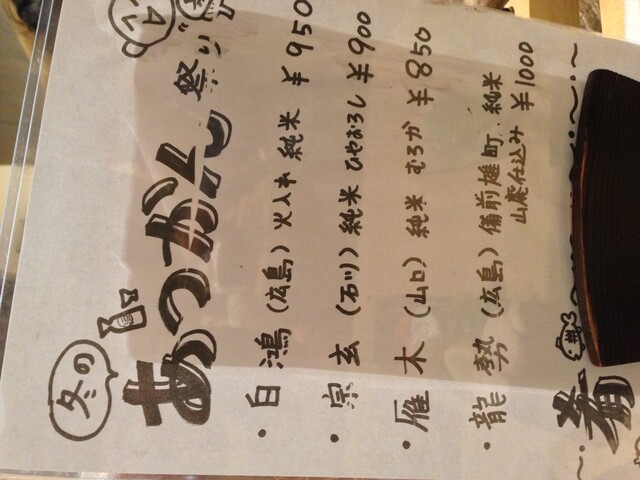 冬の
あつかん祭り
・白鴻(広島)火入れ 純米 ¥950
・宗玄(石川)純米 ひやおろし ¥900
・雁木(山口)純米 むろか ¥850
・龍勢(広島)備前雄町 純米
山廃仕込み ¥1000
肴